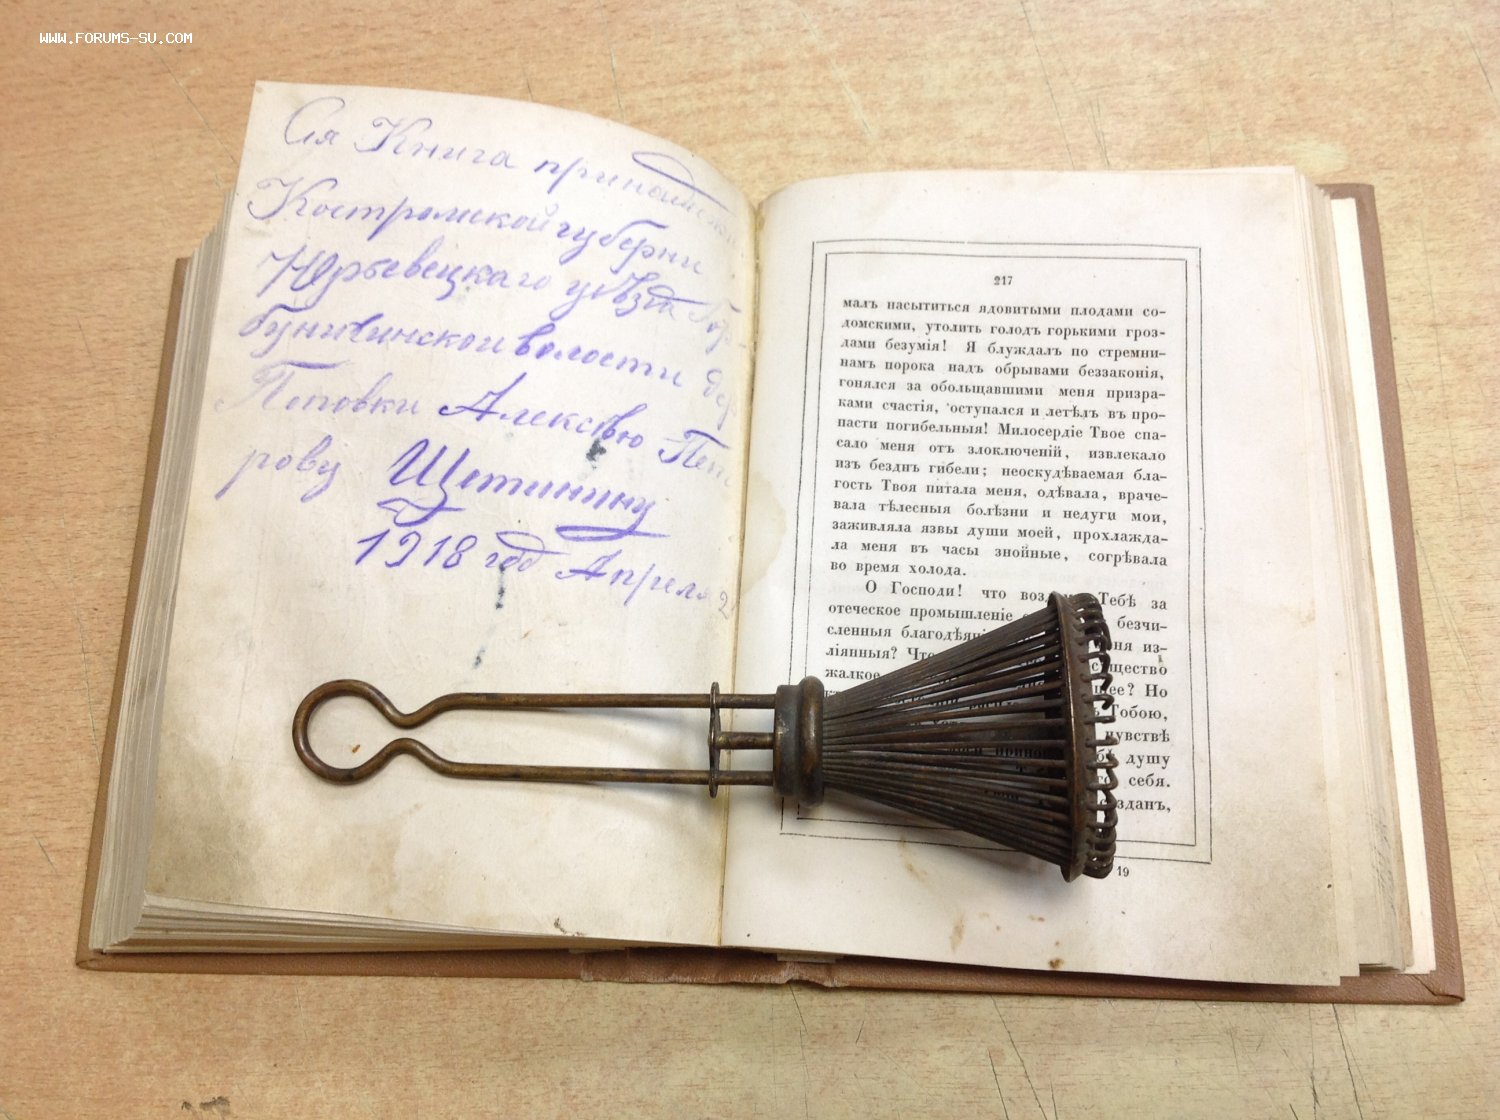 WWW.FORUMS-SU.COM
Сія Книга принадлежи
Костромской губерни
Юрьевецкаго уѣзда Гор
буничинской волости дер
Поповки Алексѣю Пет
рову Щетинину
1918 год Апреля 2
217
малъ насытиться ядовитыми плодами со-
домскими, утолить голодъ горькими гроз-
дами безумія! Я блуждалъ по стремни-
намъ порока надъ обрывами беззаконія,
гонялся за обольщавшими меня призра-
ками счастія, оступался и летѣлъ въ про-
пасти погибельныя! Милосердіе Твое спа-
сало меня отъ злоключеній, извлекало
изъ безднъ гибели; неоскудѣваемая бла-
гость Твоя питала меня, одѣвала, враче-
вала тѣлесныя болѣзни и недуги мои,
заживляла язвы души моей, прохлажда-
ла меня въ часы знойные, согрѣвала
во время холода.
О Господи! что воз Тебѣ за
отеческое промышленіе безчи-
сленныя благодѣян ня из-
ліянныя? Что существо
жалкое щее? Но
Тобою,
чувствѣ
душу
себя.
зданъ,
19